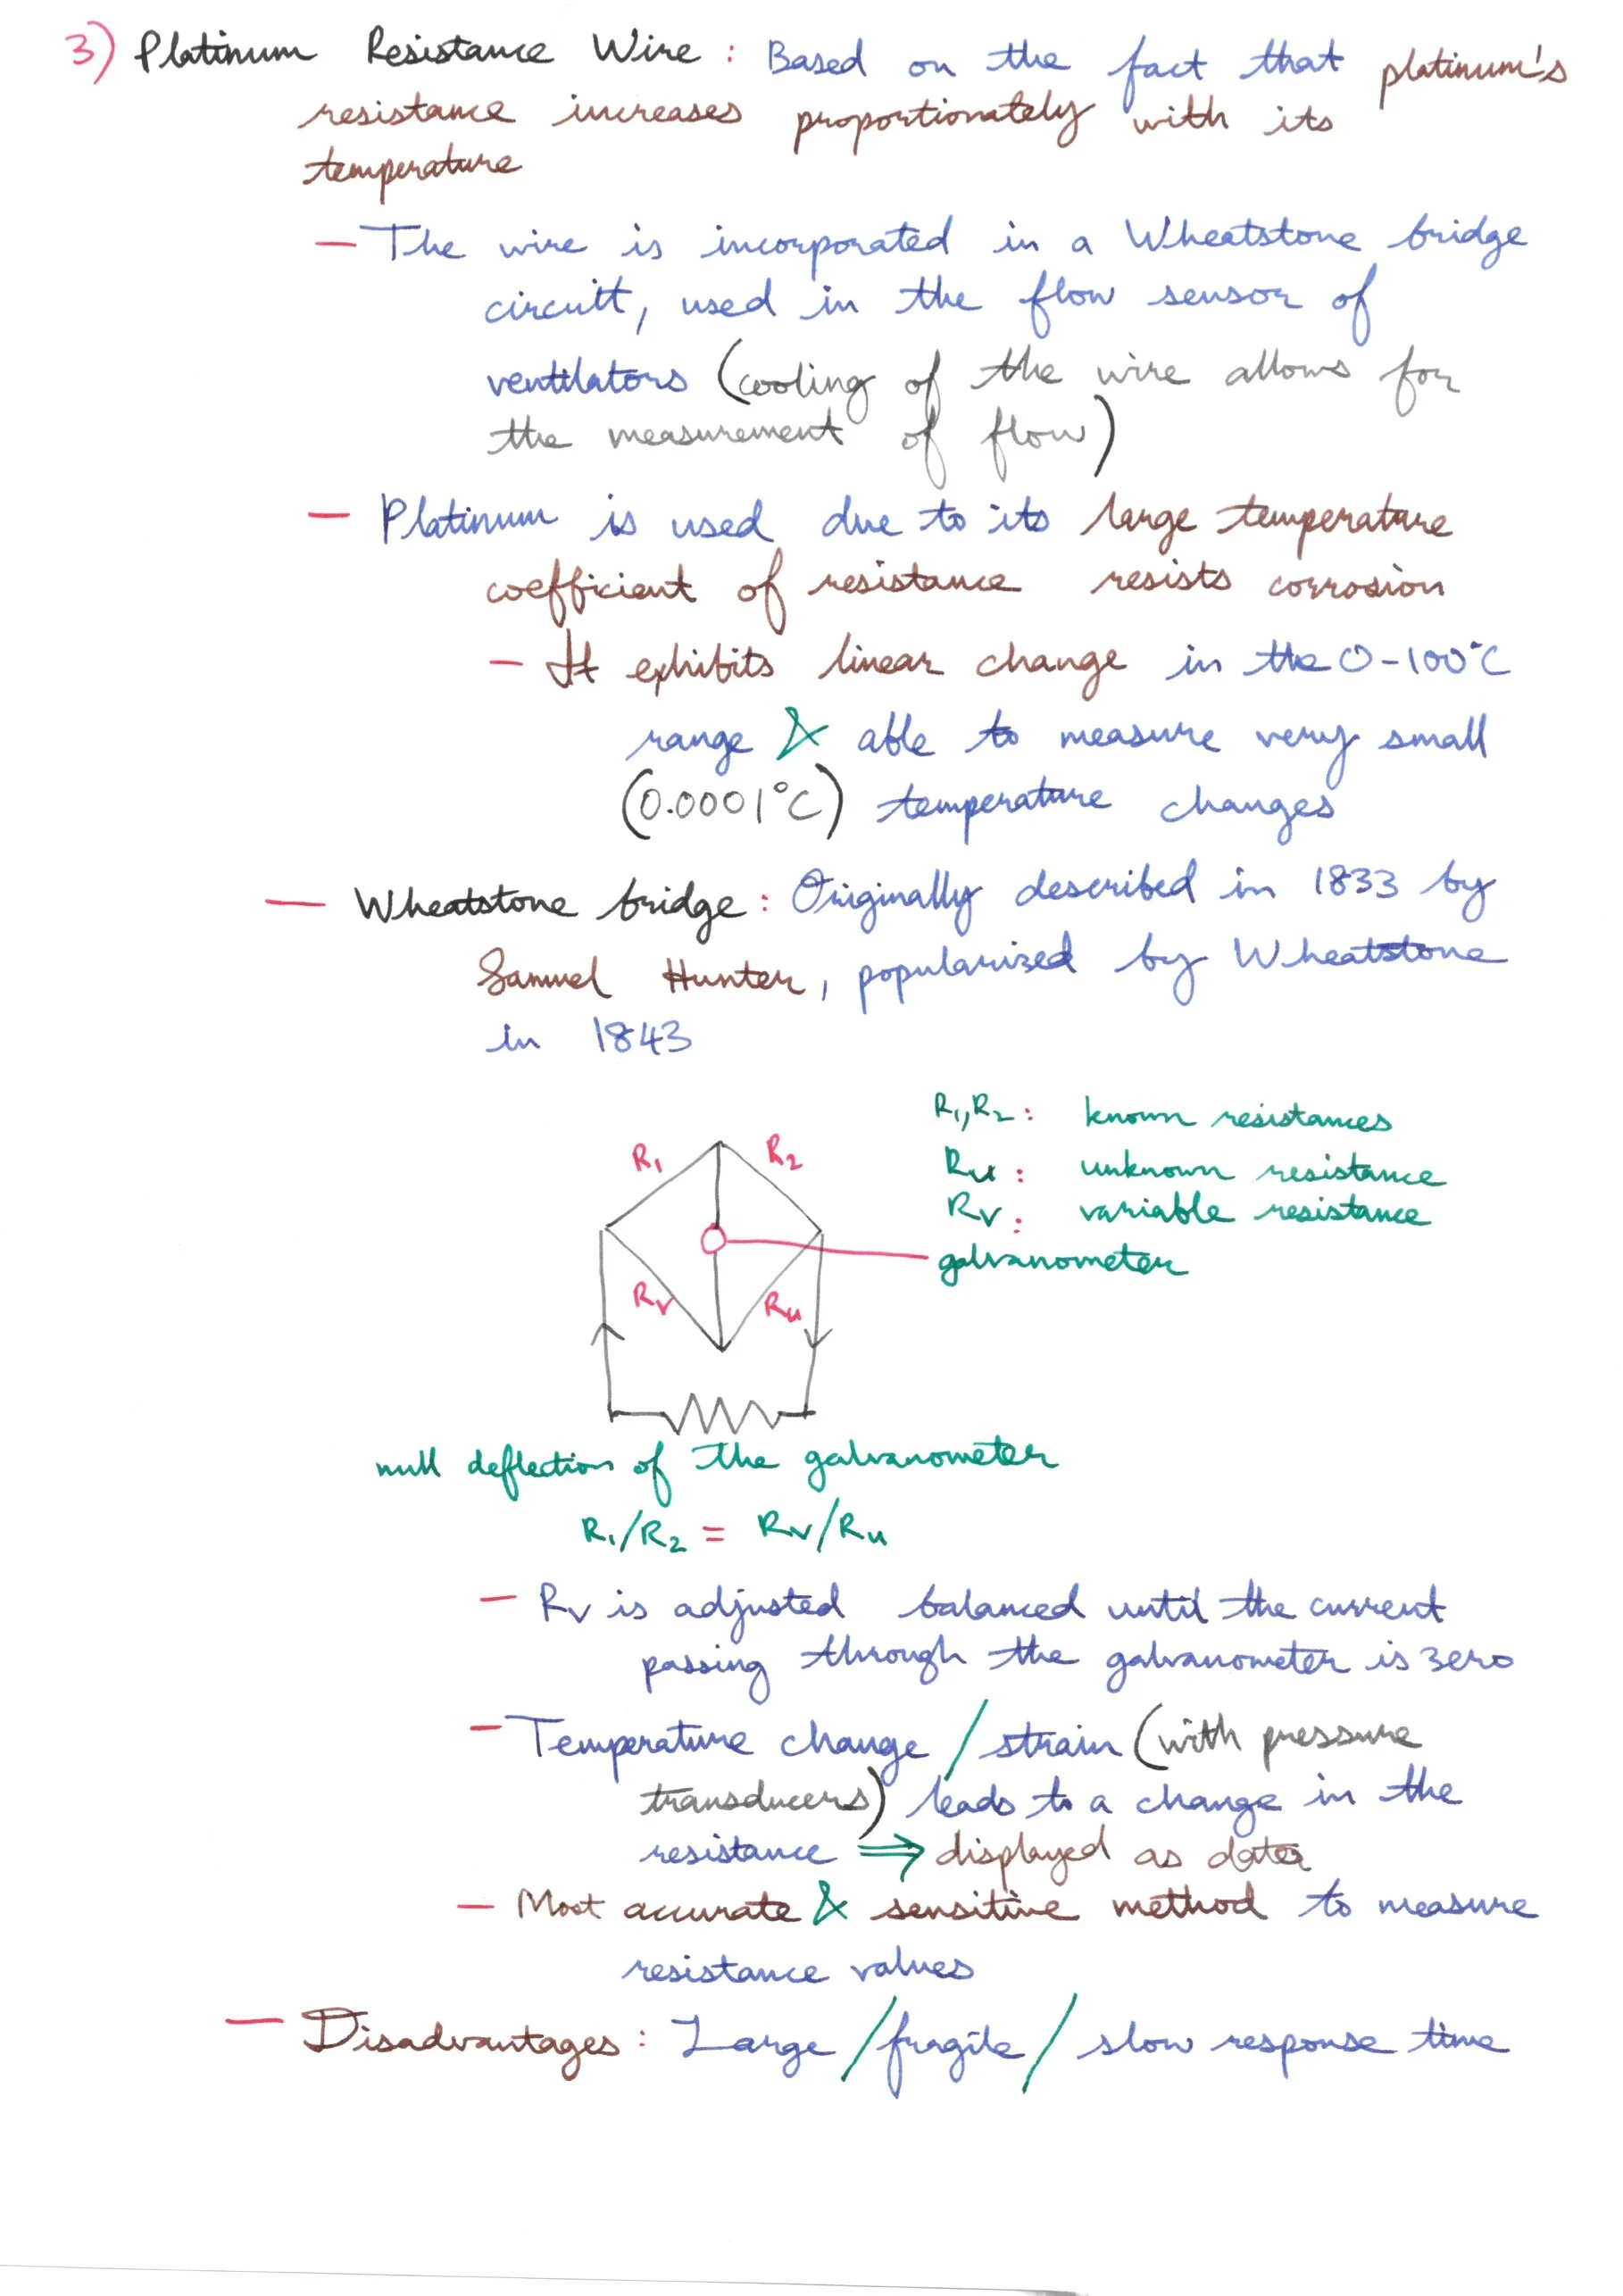 3) Platinum Resistance Wire : Based on the fact that platinum's
resistance increases proportionately with its
temperature
— The wire is incorporated in a Wheatstone bridge
circuit, used in the flow sensor of
ventilators (cooling of the wire allows for
the measurement of flow)
— Platinum is used due to its large temperature
coefficient of resistance resists corrosion
— It exhibits linear change in the 0-100°C
range & able to measure very small
(0.0001°C) temperature changes
— Wheatstone bridge : Originally described in 1833 by
Samuel Hunter, popularized by Wheatstone
in 1843
R1,R2 : known resistances
Ru : unknown resistance
Rv : variable resistance
galvanometer
R1 R2
Rv Ru
null deflection of the galvanometer
R1/R2 = Rv/Ru
— Rv is adjusted balanced until the current
passing through the galvanometer is zero
— Temperature change / strain (with pressure
transducers) leads to a change in the
resistance ⇒ displayed as data
— Most accurate & sensitive method to measure
resistance values
— Disadvantages : Large / fragile / slow response time